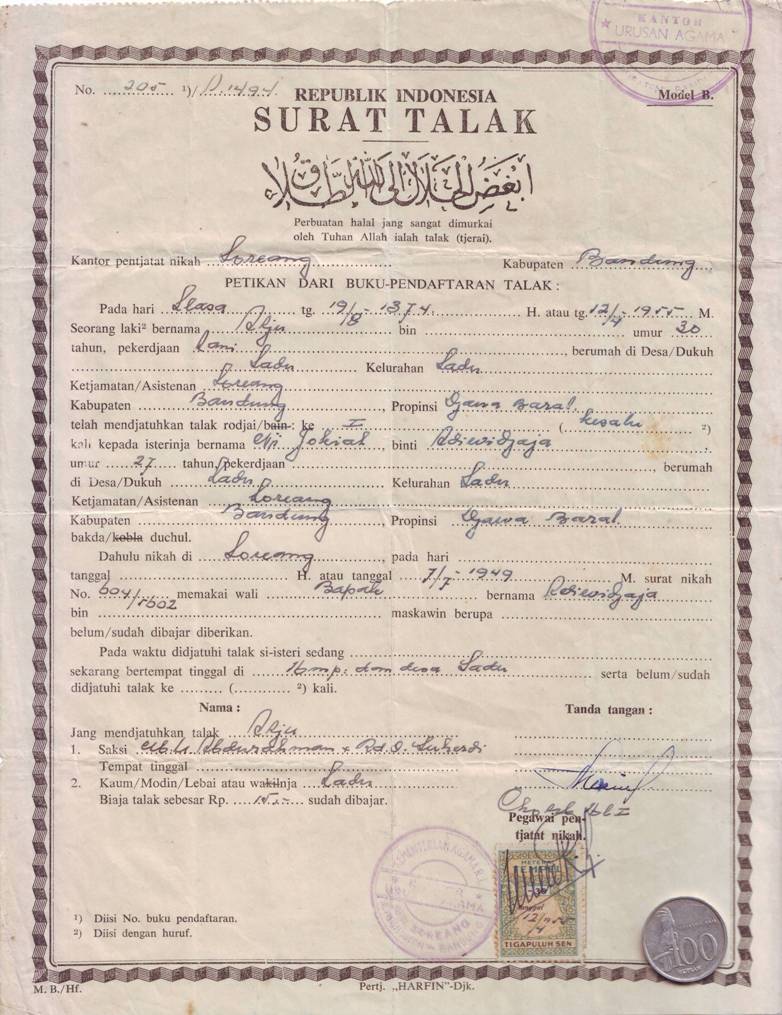 KANTOR
URUSAN AGAMA
No. 205 ¹)/ D.1494.
REPUBLIK INDONESIA
Model B.
SURAT TALAK
ابغض الحلال الى الله الطلاق
Perbuatan halal jang sangat dimurkai
oleh Tuhan Allah ialah talak (tjerai).
Kantor pentjatat nikah Soreang Kabupaten Bandung
PETIKAN DARI BUKU-PENDAFTARAN TALAK :
Pada hari Selasa tg. 19/8 - 1374 H. atau tg. 12/4 - 1955 M.
Seorang laki² bernama bin umur 30
tahun, pekerdjaan tani, berumah di Desa/Dukuh
Sadu Kelurahan Sadu
Ketjamatan/Asistenan Soreang
Kabupaten Bandung, Propinsi Djawa Barat
telah mendjatuhkan talak rodjai/bain-: ke I (kesatu ²)
kali kepada isterinja bernama Jokiah, binti Adiwidjaja
umur 27 tahun, pekerdjaan, berumah
di Desa/Dukuh Sadu Kelurahan Sadu
Ketjamatan/Asistenan Soreang
Kabupaten Bandung, Propinsi Djawa Barat
bakda/kobla duchul.
Dahulu nikah di Soreang, pada hari
tanggal H. atau tanggal 7/7 - 1949 M. surat nikah
No. 604/1002 memakai wali Bapak bernama Adiwidjaja
bin maskawin berupa
belum/sudah dibajar diberikan.
Pada waktu didjatuhi talak si-isteri sedang
sekarang bertempat tinggal di Kmp. dan desa Sadu serta belum/sudah
didjatuhi talak ke (²) kali.
Nama : Tanda tangan :
Jang mendjatuhkan talak
1. Saksi Abdurahman Suhardi
Tempat tinggal
2. Kaum/Modin/Lebai atau wakilnja Sadu
Biaja talak sebesar Rp. 15.- sudah dibajar.
Pegawai pen-
tjatat nikah.
KEMENTERIAN AGAMA R.I.
SOREANG
METERAI
Tanggal
12/4 1955
TIGAPULUH SEN
¹) Diisi No. buku pendaftaran.
²) Diisi dengan huruf.
100
RUPIAH
M. B./Hf.
Pertj. „HARFIN"-Djk.